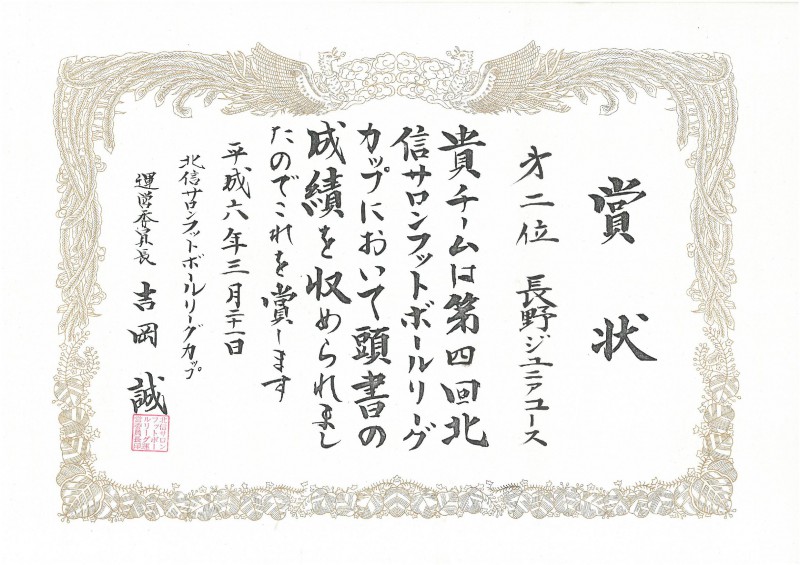 賞状
才二位 長野ジュニアユース
貴チームは第四回北
信サロンフットボールリーグ
カップにおいて頭書の
成績を収められまし
たのでこれを賞します
平成六年三月二十一日
北信サロンフットボールリーグカップ
運営委員長 吉岡 誠
北信サロン
フットボー
ルリーグ運
営委員長印